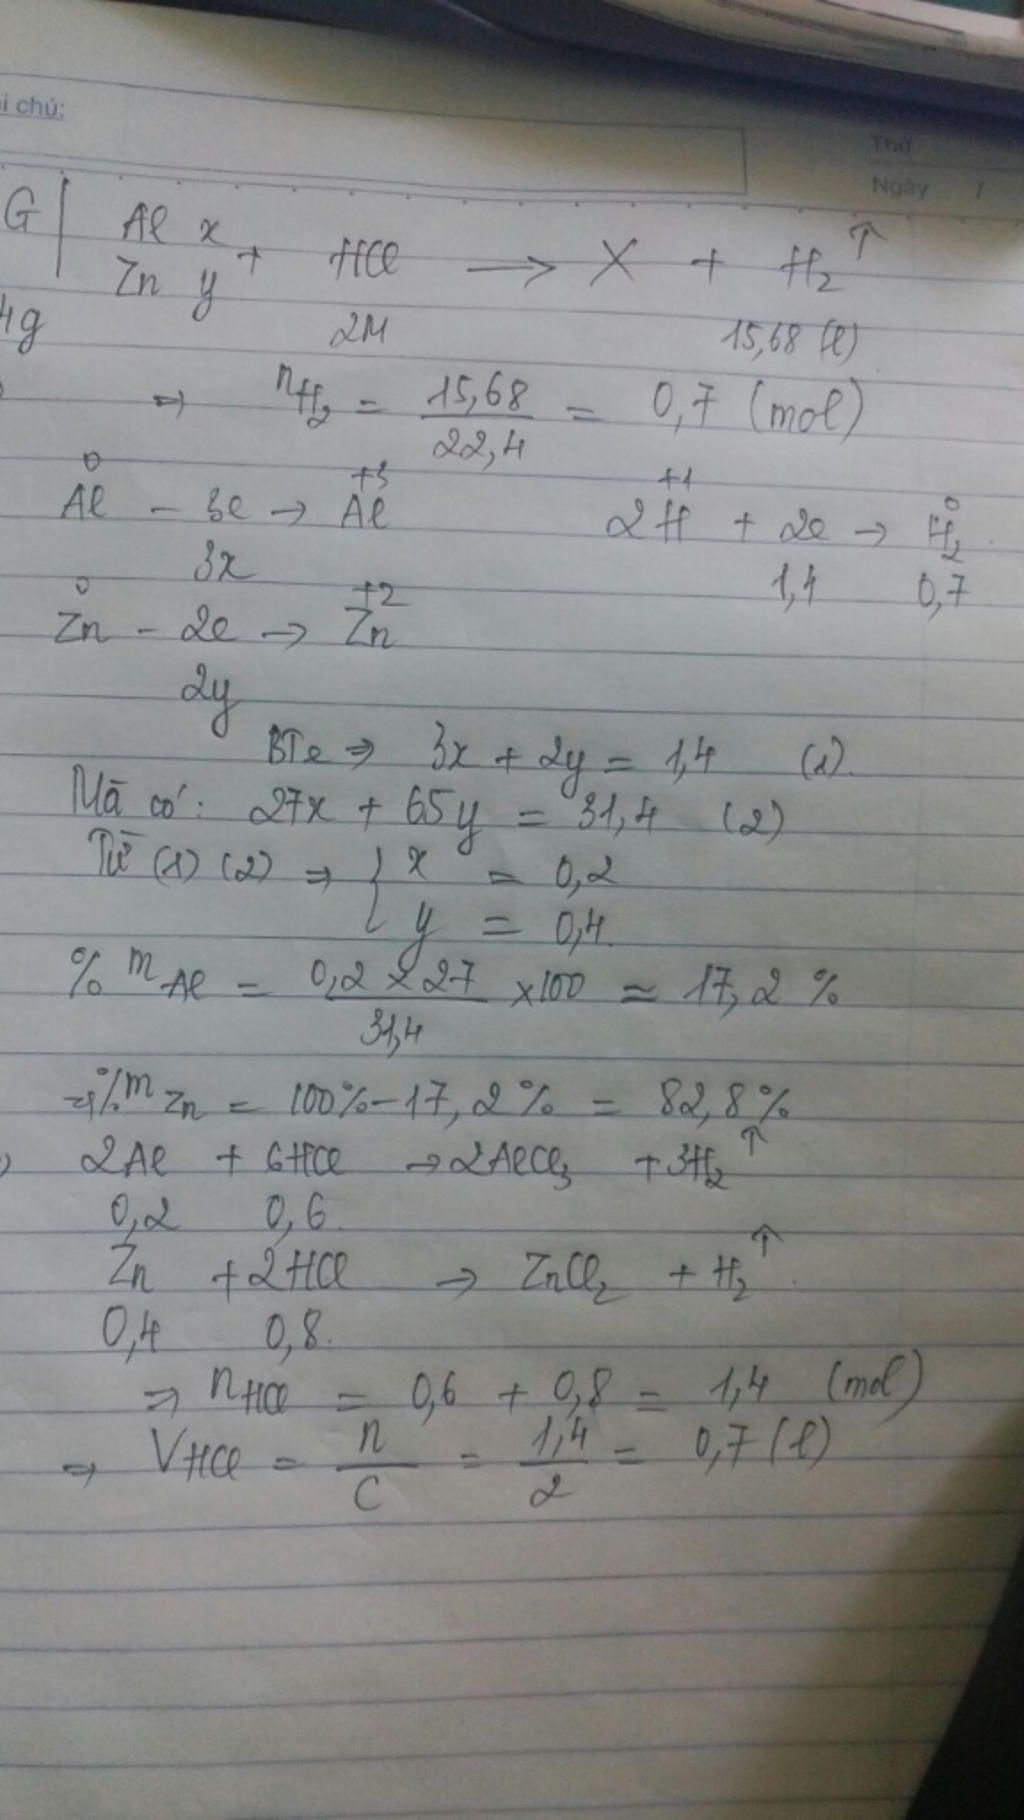 i chú:
Thứ
Ngày /
G | Al x + HCl → X + H₂↑
Zn y
4g 2M 15,68 (l)
⇒ nH₂ = 15,68/22,4 = 0,7 (mol)
0 +3 +1 0
Al - 3e → Al 2H + 2e → H₂
3x 1,4 0,7
0 +2
Zn - 2e → Zn
2y
BTe ⇒ 3x + 2y = 1,4 (1).
Mà có: 27x + 65y = 31,4 (2)
Từ (1) (2) ⇒ { x = 0,2
y = 0,4.
% mAl = 0,2 x 27/31,4 x100 = 17,2 %
⇒ % mZn = 100% - 17,2% = 82,8%
) 2Al + 6HCl → 2AlCl₃ + 3H₂↑
0,2 0,6.
Zn + 2HCl → ZnCl₂ + H₂↑.
0,4 0,8.
⇒ nHCl = 0,6 + 0,8 = 1,4 (mol)
⇒ VHCl = n/C = 1,4/2 = 0,7 (l)